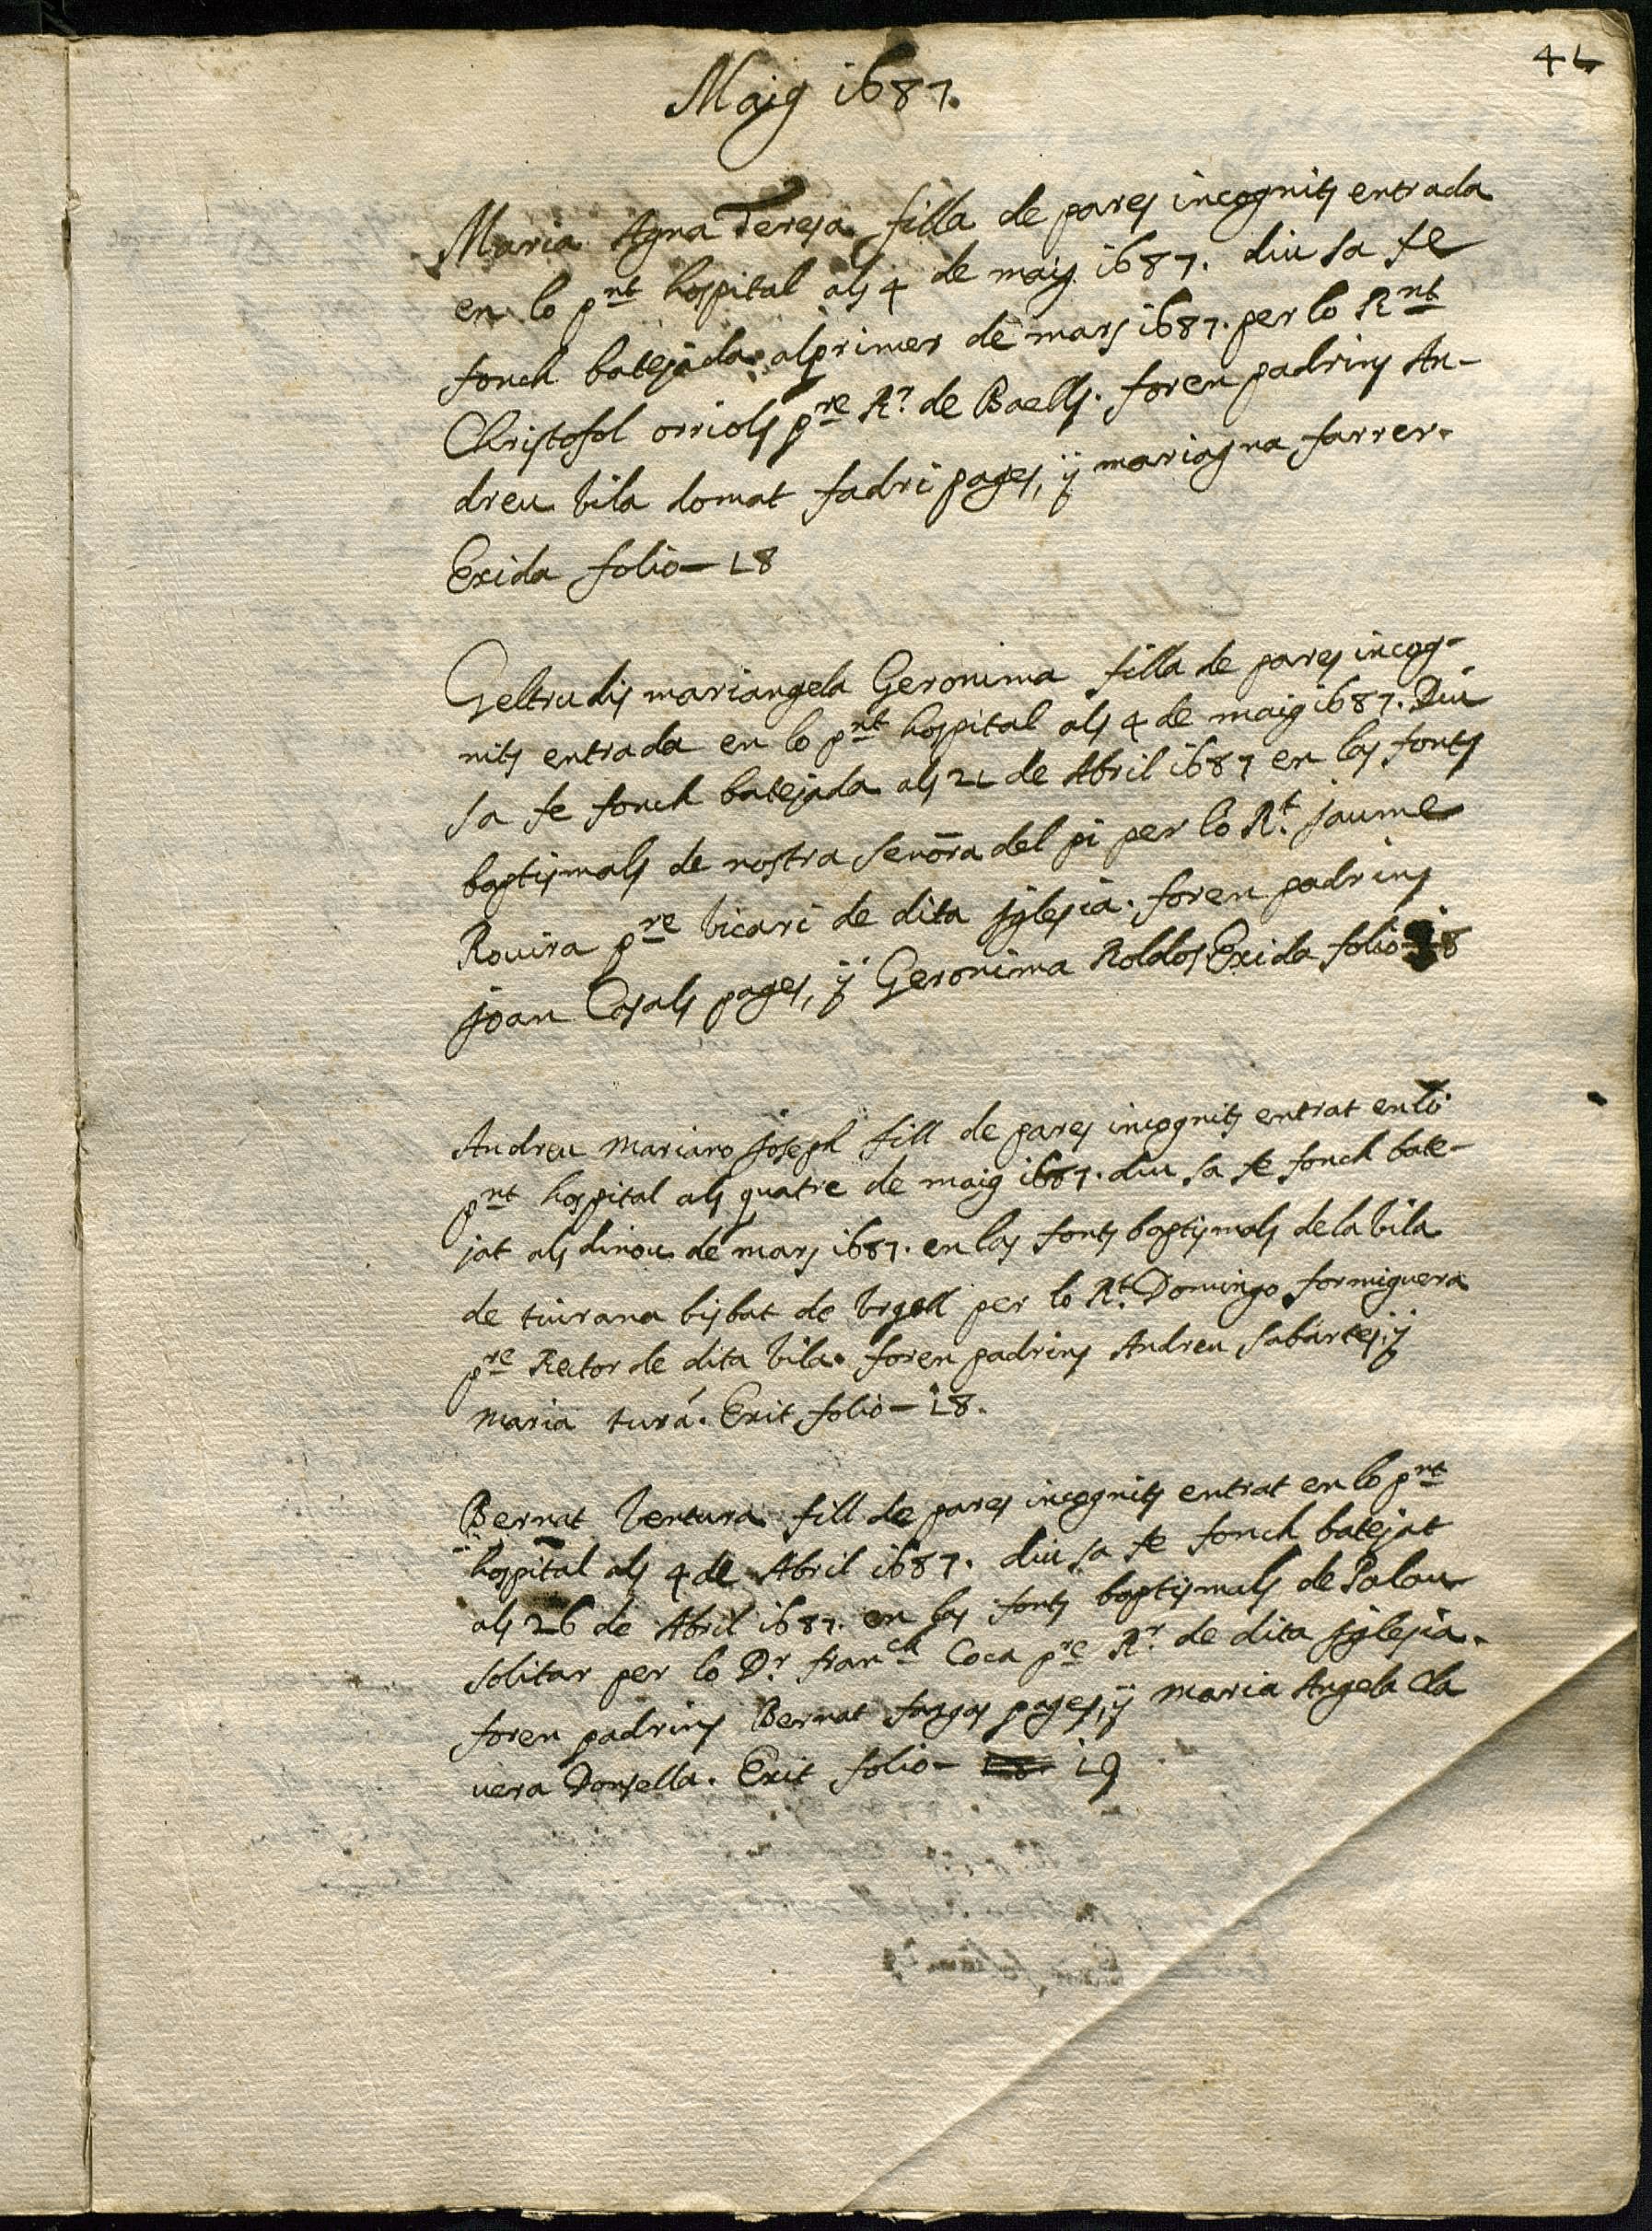 41
Maig 1687.
Maria Agna Teresa filla de pares incognits entrada
en lo pnt hospital als 4 de maig 1687. diu sa fe
fonch batejada al primer de mars 1687. per lo Rnt
Christofol orriols pre Rr de Baells. foren padrins An-
dreu Vila domat fadri pages, ÿ mariagna farrer.
Exida folio - 18
Geltrudis mariangela Geronima filla de pares incog-
nits entrada en lo pnt hospital als 4 de maig 1687. Diu
sa fe fonch batejada als 21 de Abril 1687 en las fonts
baptismals de nostra señora del pi per lo Rt. jaume
Rovira pre vicari de dita jglesia. foren padrins
joan Casals pages, ÿ Geronima Roldos Exida folio 18
Andreu Mariano joseph fill de pares incognits entrat en lo
pnt hospital als quatre de maig 1687. diu sa fe fonch bate-
jat als dinou de mars 1687. en las fonts baptismals de la vila
de tiurana bisbat de Vrgell per lo Rt. Domingo formiguera
pre Rector de dita vila. foren padrins Andreu sabartes, ÿ
maria turá. Exit folio - 18.
Bernat Ventura fill de pares incognits entrat en lo pnt
hospital als 4 de Abril 1687. diu sa fe fonch batejat
als 26 de Abril 1687. en las fonts baptismals de Palau
solitar per lo Dr. Franch Coca pre Rr. de dita jglesia.
foren padrins Bernat fargas pages, ÿ maria Angela Cla
uera Donsella. Exit folio - 19